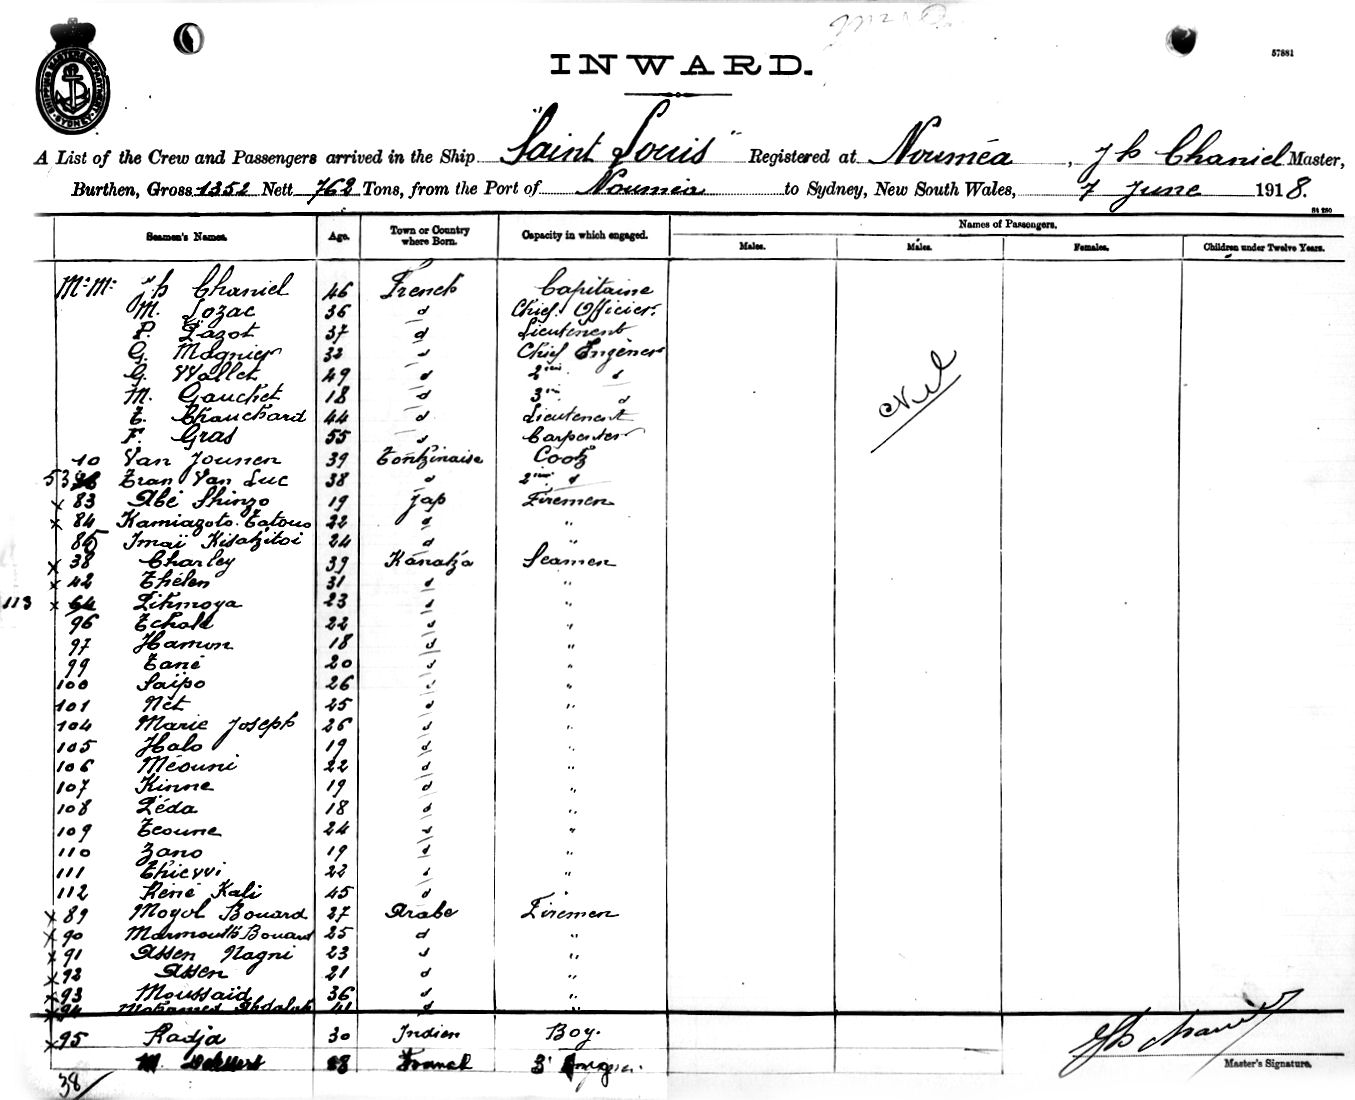 INWARD.
57881
A List of the Crew and Passengers arrived in the Ship "Saint Louis" Registered at Nouméa, Jh Chaniel Master,
Burthen, Gross 1352 Nett 762 Tons, from the Port of Nouméa to Sydney, New South Wales, 7 June 1918.
Seamen's Names. Age. Town or Country where Born. Capacity in which engaged. Names of Passengers.
Males. Males. Females. Children under Twelve Years.
Mr Mr Jh Chaniel 46 French Capitaine
M. Lozac 36 d Chief Officier.
P. Lazot 37 d Lieutenent
G. Magnier 32 d Chief Engener
G. Wallet 49 d 2em d
M. Gauchet 18 d 3em d
E. Chauchard 44 d Lieutenent
F. Gras 55 d Carpenter
Nil
10 Van Jounen 39 Tonkinaise Cook
53 Tran Van Luc 38 d 2em d
x 83 Abé Shinzo 19 Jap Firemen
x 84 Kamiagoto Tatouo 22 d "
85 Imaï Kisakitoi 24 d "
x 38 Charley 39 Kanaka Seamen
x 42 Thélen 31 d "
113 x 64 Litimoya 23 d "
96 Echale 22 d "
97 Hamon 18 d "
99 Tané 20 d "
100 Saïpo 26 d "
101 Nét 25 d "
104 Marie Joseph 26 d "
105 Halo 19 d "
106 Méouni 22 d "
107 Kinne 19 d "
108 Léda 18 d "
109 Tcoune 24 d "
110 Zano 19 d "
111 Thievvi 22 d "
112 Réné Kali 45 d "
x 89 Mogol Bouard 27 Arabe Firemen
x 90 Marmouth Bouard 25 d "
x 91 Assen Nagni 23 d "
x 92 Assen 21 d "
x 93 Moussaïd 36 d "
x 94 Mohamed Abdalah 41 d "
x 95 Radja 30 Indien Boy.
M. 3'
38
Jh Chaniel
Master's Signature.